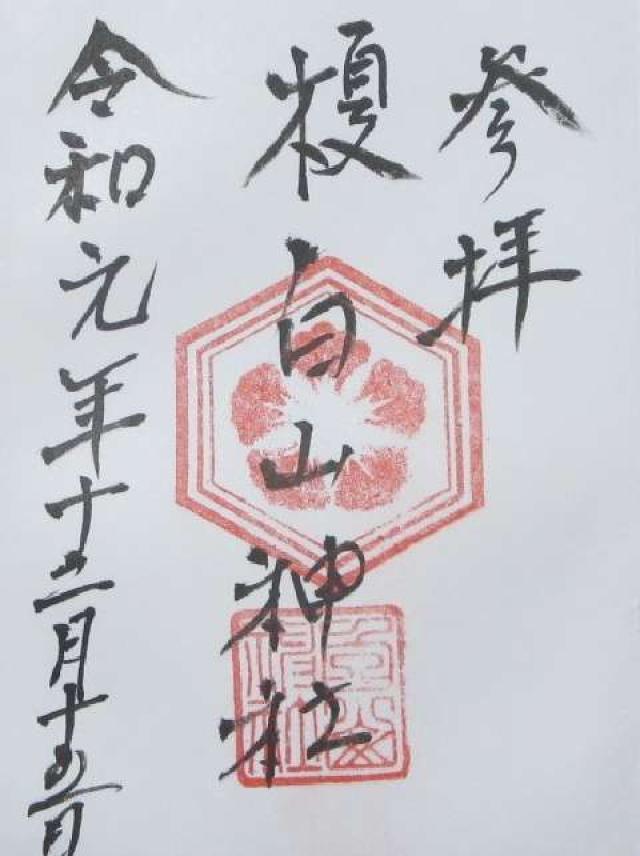 参拝
榎白山神社
令和元年十二月十五日